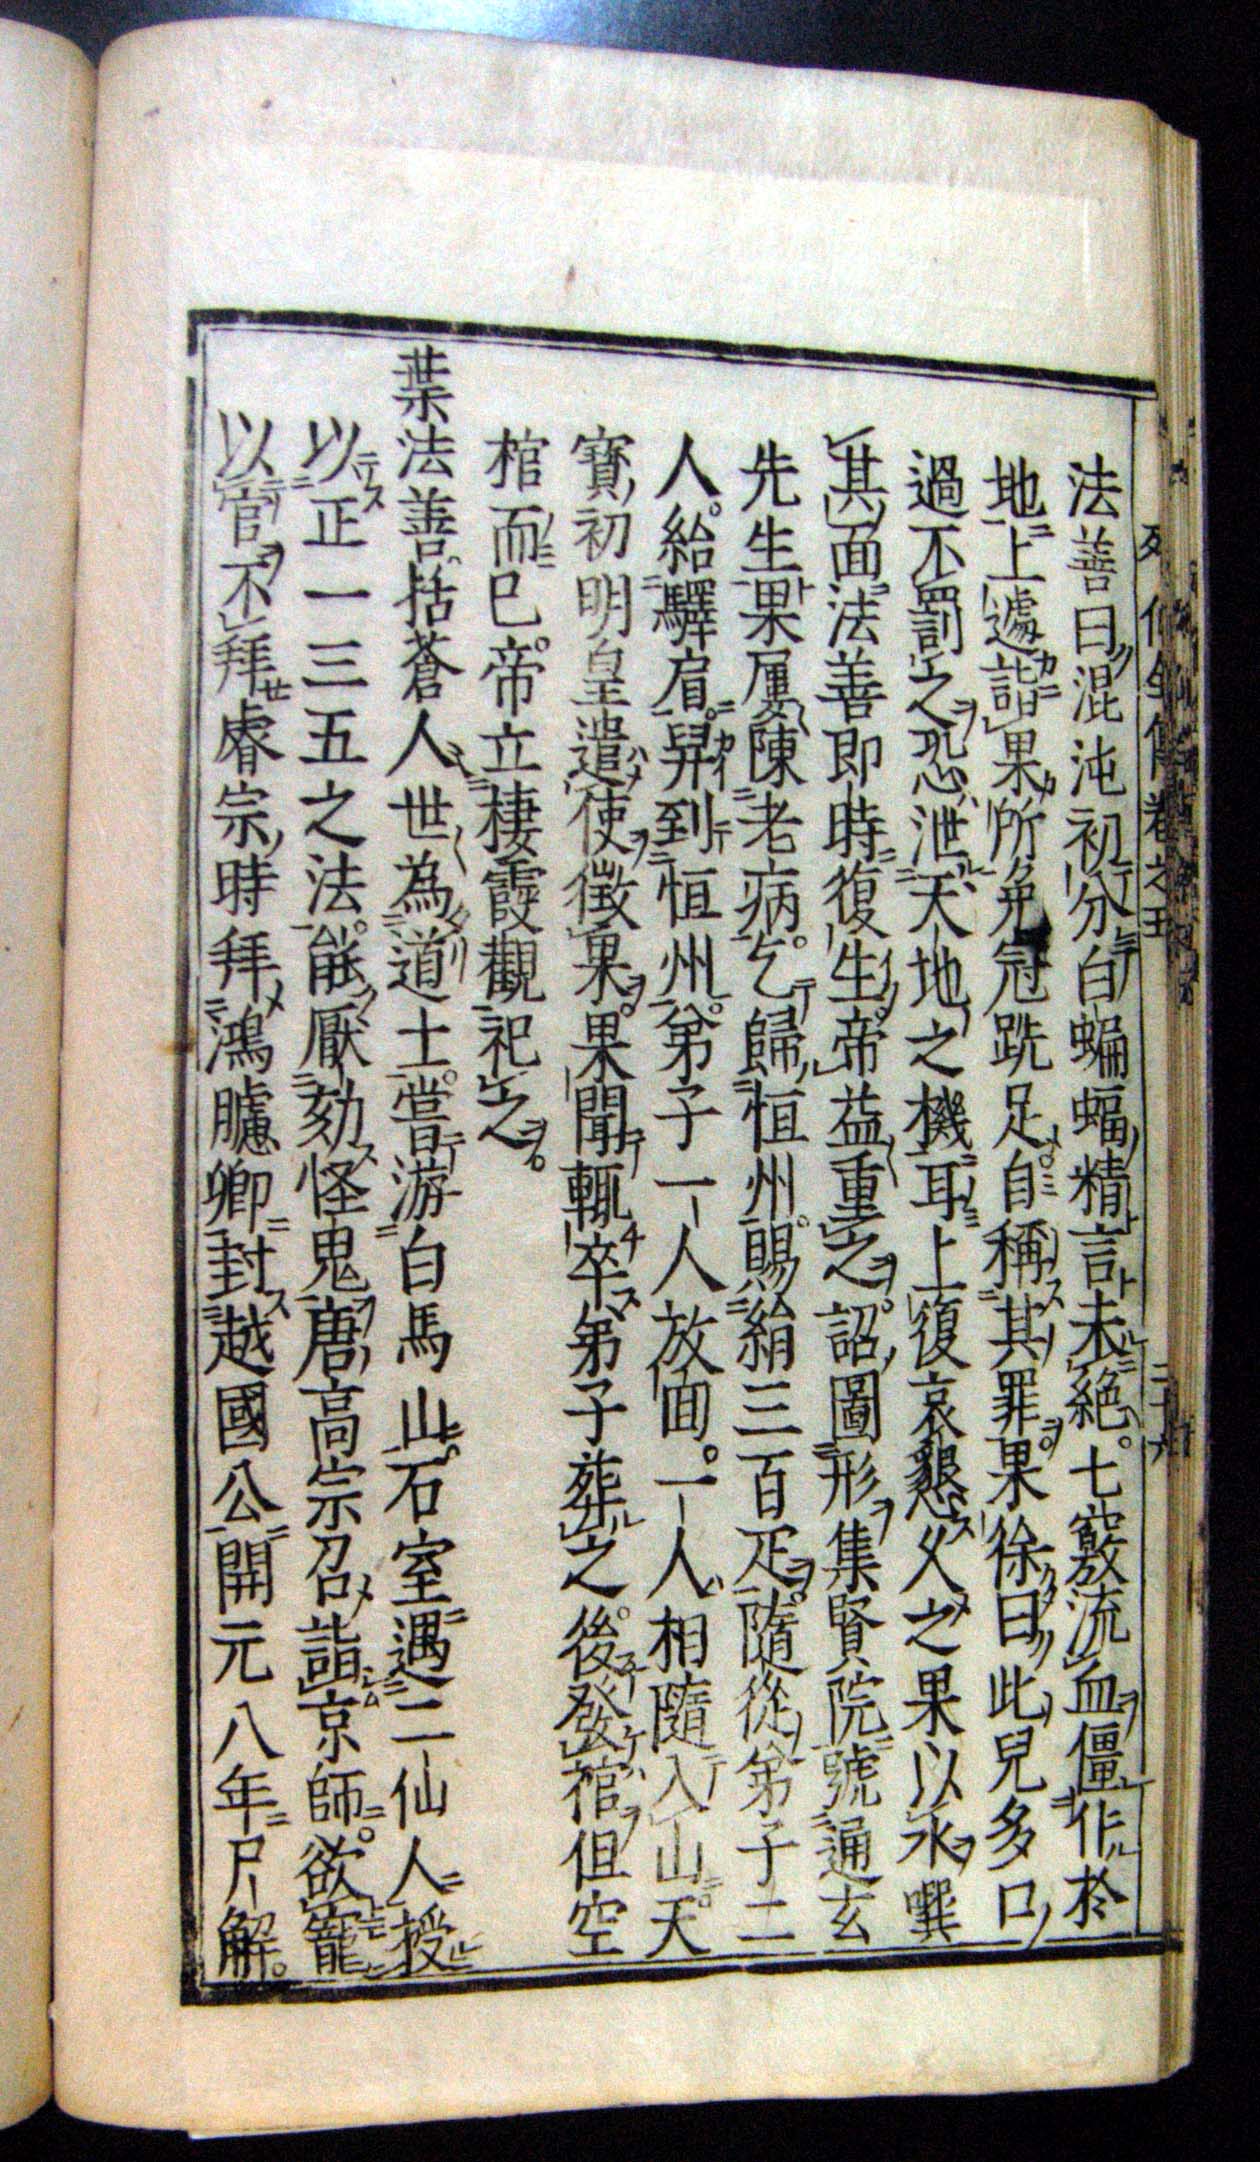 列仙全傳卷之五 二十六
法善曰混沌初分白蝙蝠精言未絕。七竅流血僵仆於
地上遽詣果所免冠跣足。自稱其罪。果徐曰此兒多口
過不罰之恐泄天地之機耳上復哀懇久之果以水噀
其面法善即時復生。帝益重之。詔圖形集賢院號通玄
先生果屢陳老病。乞歸恒州。賜絹三百疋。隨從弟子二
人。給驛肩。舁到恒州。弟子一人放回。一人相隨入山。天
寶初明皇遣使徵果。果聞輒卒弟子葬之。後發棺但空
棺而已。帝立棲霞觀祀之。
葉法善。括蒼人世為道士。嘗游白馬山。石室遇二仙人授
以正一三五之法。能厭劾怪鬼。唐高宗召詣京師。欲寵
以官不拜睿宗時拜鴻臚卿封越國公開元八年尸解。